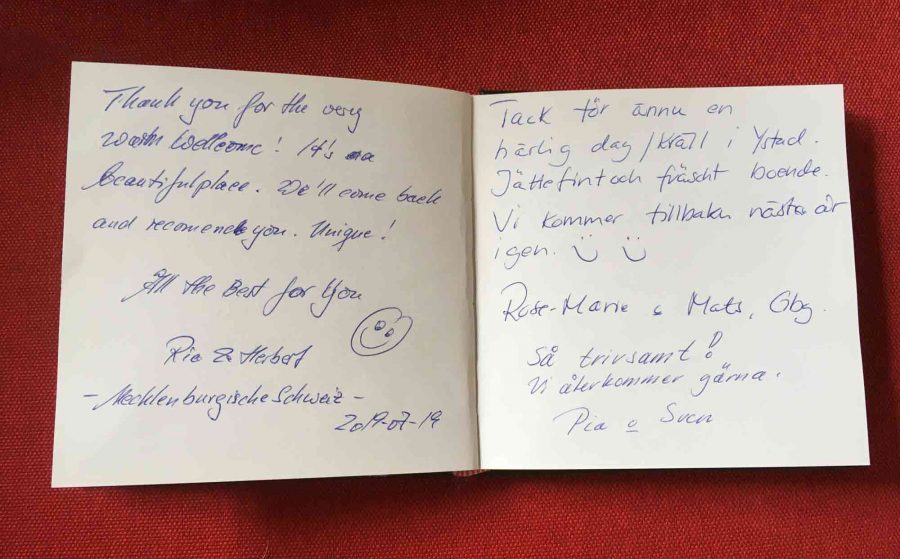 Thank you for the very
warm Wellcome! It's a
beautifulplace. We'll come back
and recomend you. Unique!
All the Best for You
Ria & Herbert
- Mecklenburgische Schweiz -
2019-07-19
Tack för ännu en
härlig dag/kväll i Ystad.
Jättefint och fräscht boende.
Vi kommer tillbaka nästa år
igen.
Rose-Marie & Mats, Gbg.
Så trivsamt!
Vi återkommer gärna.
Pia o Sven